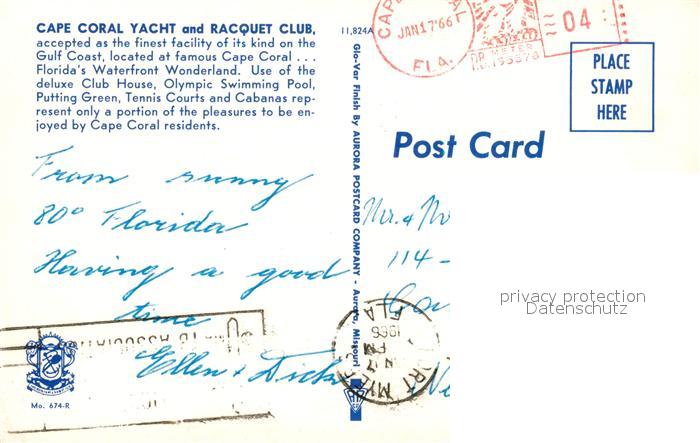 CAPE CORAL YACHT and RACQUET CLUB,
accepted as the finest facility of its kind on the
Gulf Coast, located at famous Cape Coral . . .
Florida's Waterfront Wonderland. Use of the
deluxe Club House, Olympic Swimming Pool,
Putting Green, Tennis Courts and Cabanas rep-
resent only a portion of the pleasures to be en-
joyed by Cape Coral residents.
From sunny
80° Florida
Having a good
time
Ellen + Dick
Mo. 674-R
11,824A
Glo-Var Finish By AURORA POSTCARD COMPANY - Aurora, Missouri
JAN 17 '66
FLA.
04
PLACE
STAMP
HERE
Post Card
Mr. &
114 -
FORT MYERS
17
PM
1966
FLA
privacy protection
Datenschutz